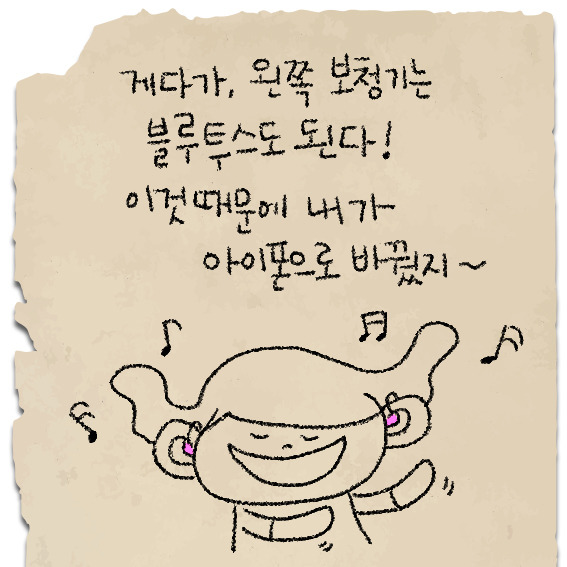 게다가, 왼쪽 보청기는
블루투스도 된다!
이것때문에 내가
아이폰으로 바꿨지~